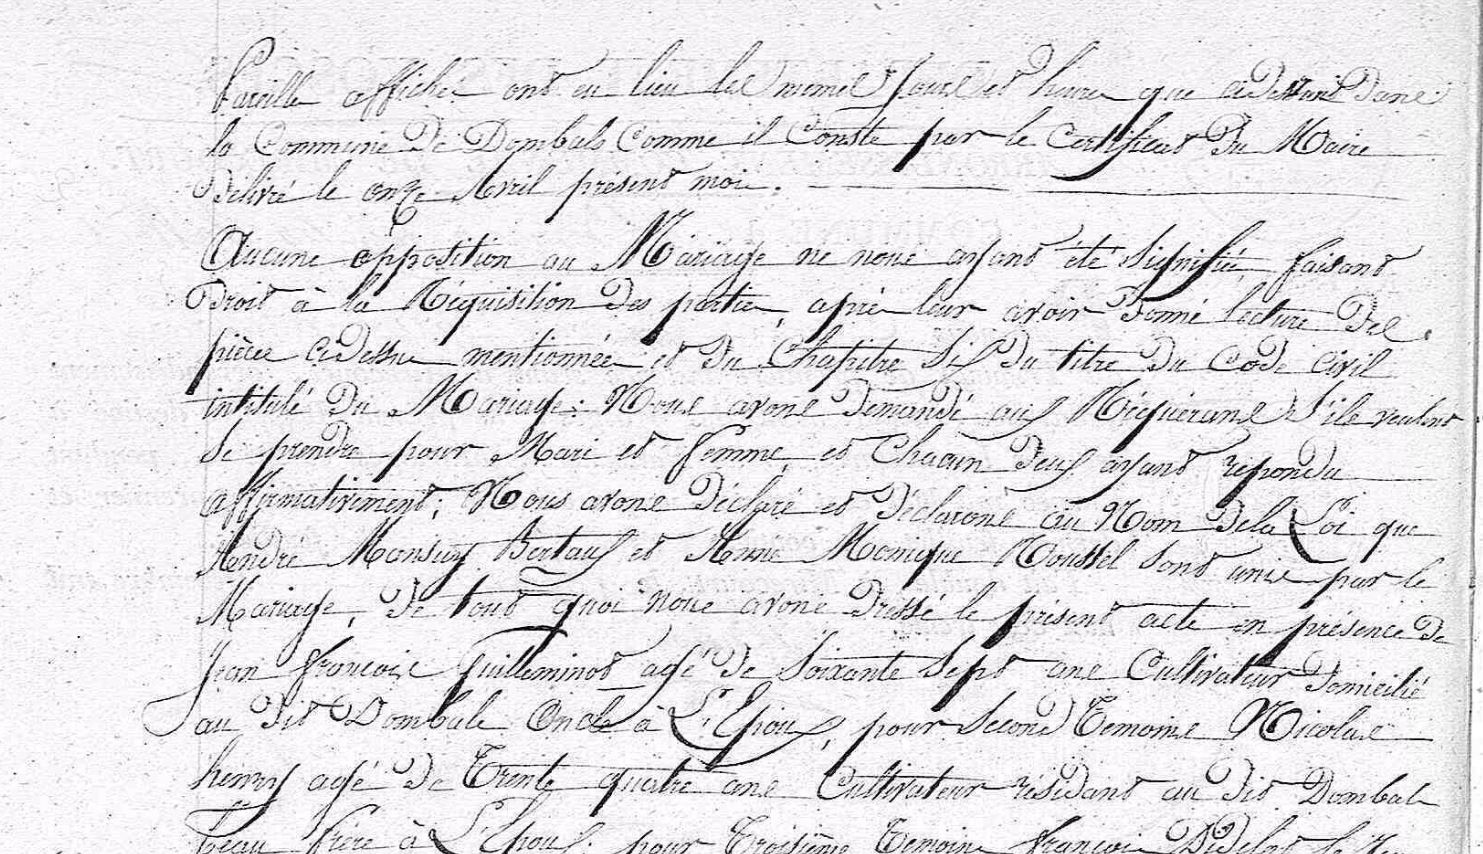 Pareilles affiches ont eu lieu les memes Jours et heures que cidevant dans
la Commune De Dombals Comme il Conste par le Certificat Du Maire
Délivré le onze Avril présent mois.
Aucune opposition au Mariage ne nous ayant été Signifiée, faisant
Droit à la Réquisition Des parties, après leur avoir Donné lecture Des
pièces cidessus mentionnées et Du Chapitre Six du titre Du Code Civil
intitulé Du Mariage: Nous avons Demandé aux Réquérans S'ils veulent
Se prendre pour Mari et femme, et Chacun Deux ayant repondu
affirmativement; Nous avons Déclaré et Déclarons au Nom Dela Loi que
André Monsuy Bertaux et Anne Monique Roussel Sont unis par le
Mariage, De tout quoi nous avons Dressé le présent acte en présence De
Jean françois Guilleminot agé De Soixante Sept ans Cultivateur Domicilié
au Dit Dombale Oncle à L'Epoux, pour Second Temoins Nicolas
henry agé De Trente quatre ans Cultivateur résidant au Dit Dombale
beau frère à L'Epoux, pour Troisième Temoins françois Didelot